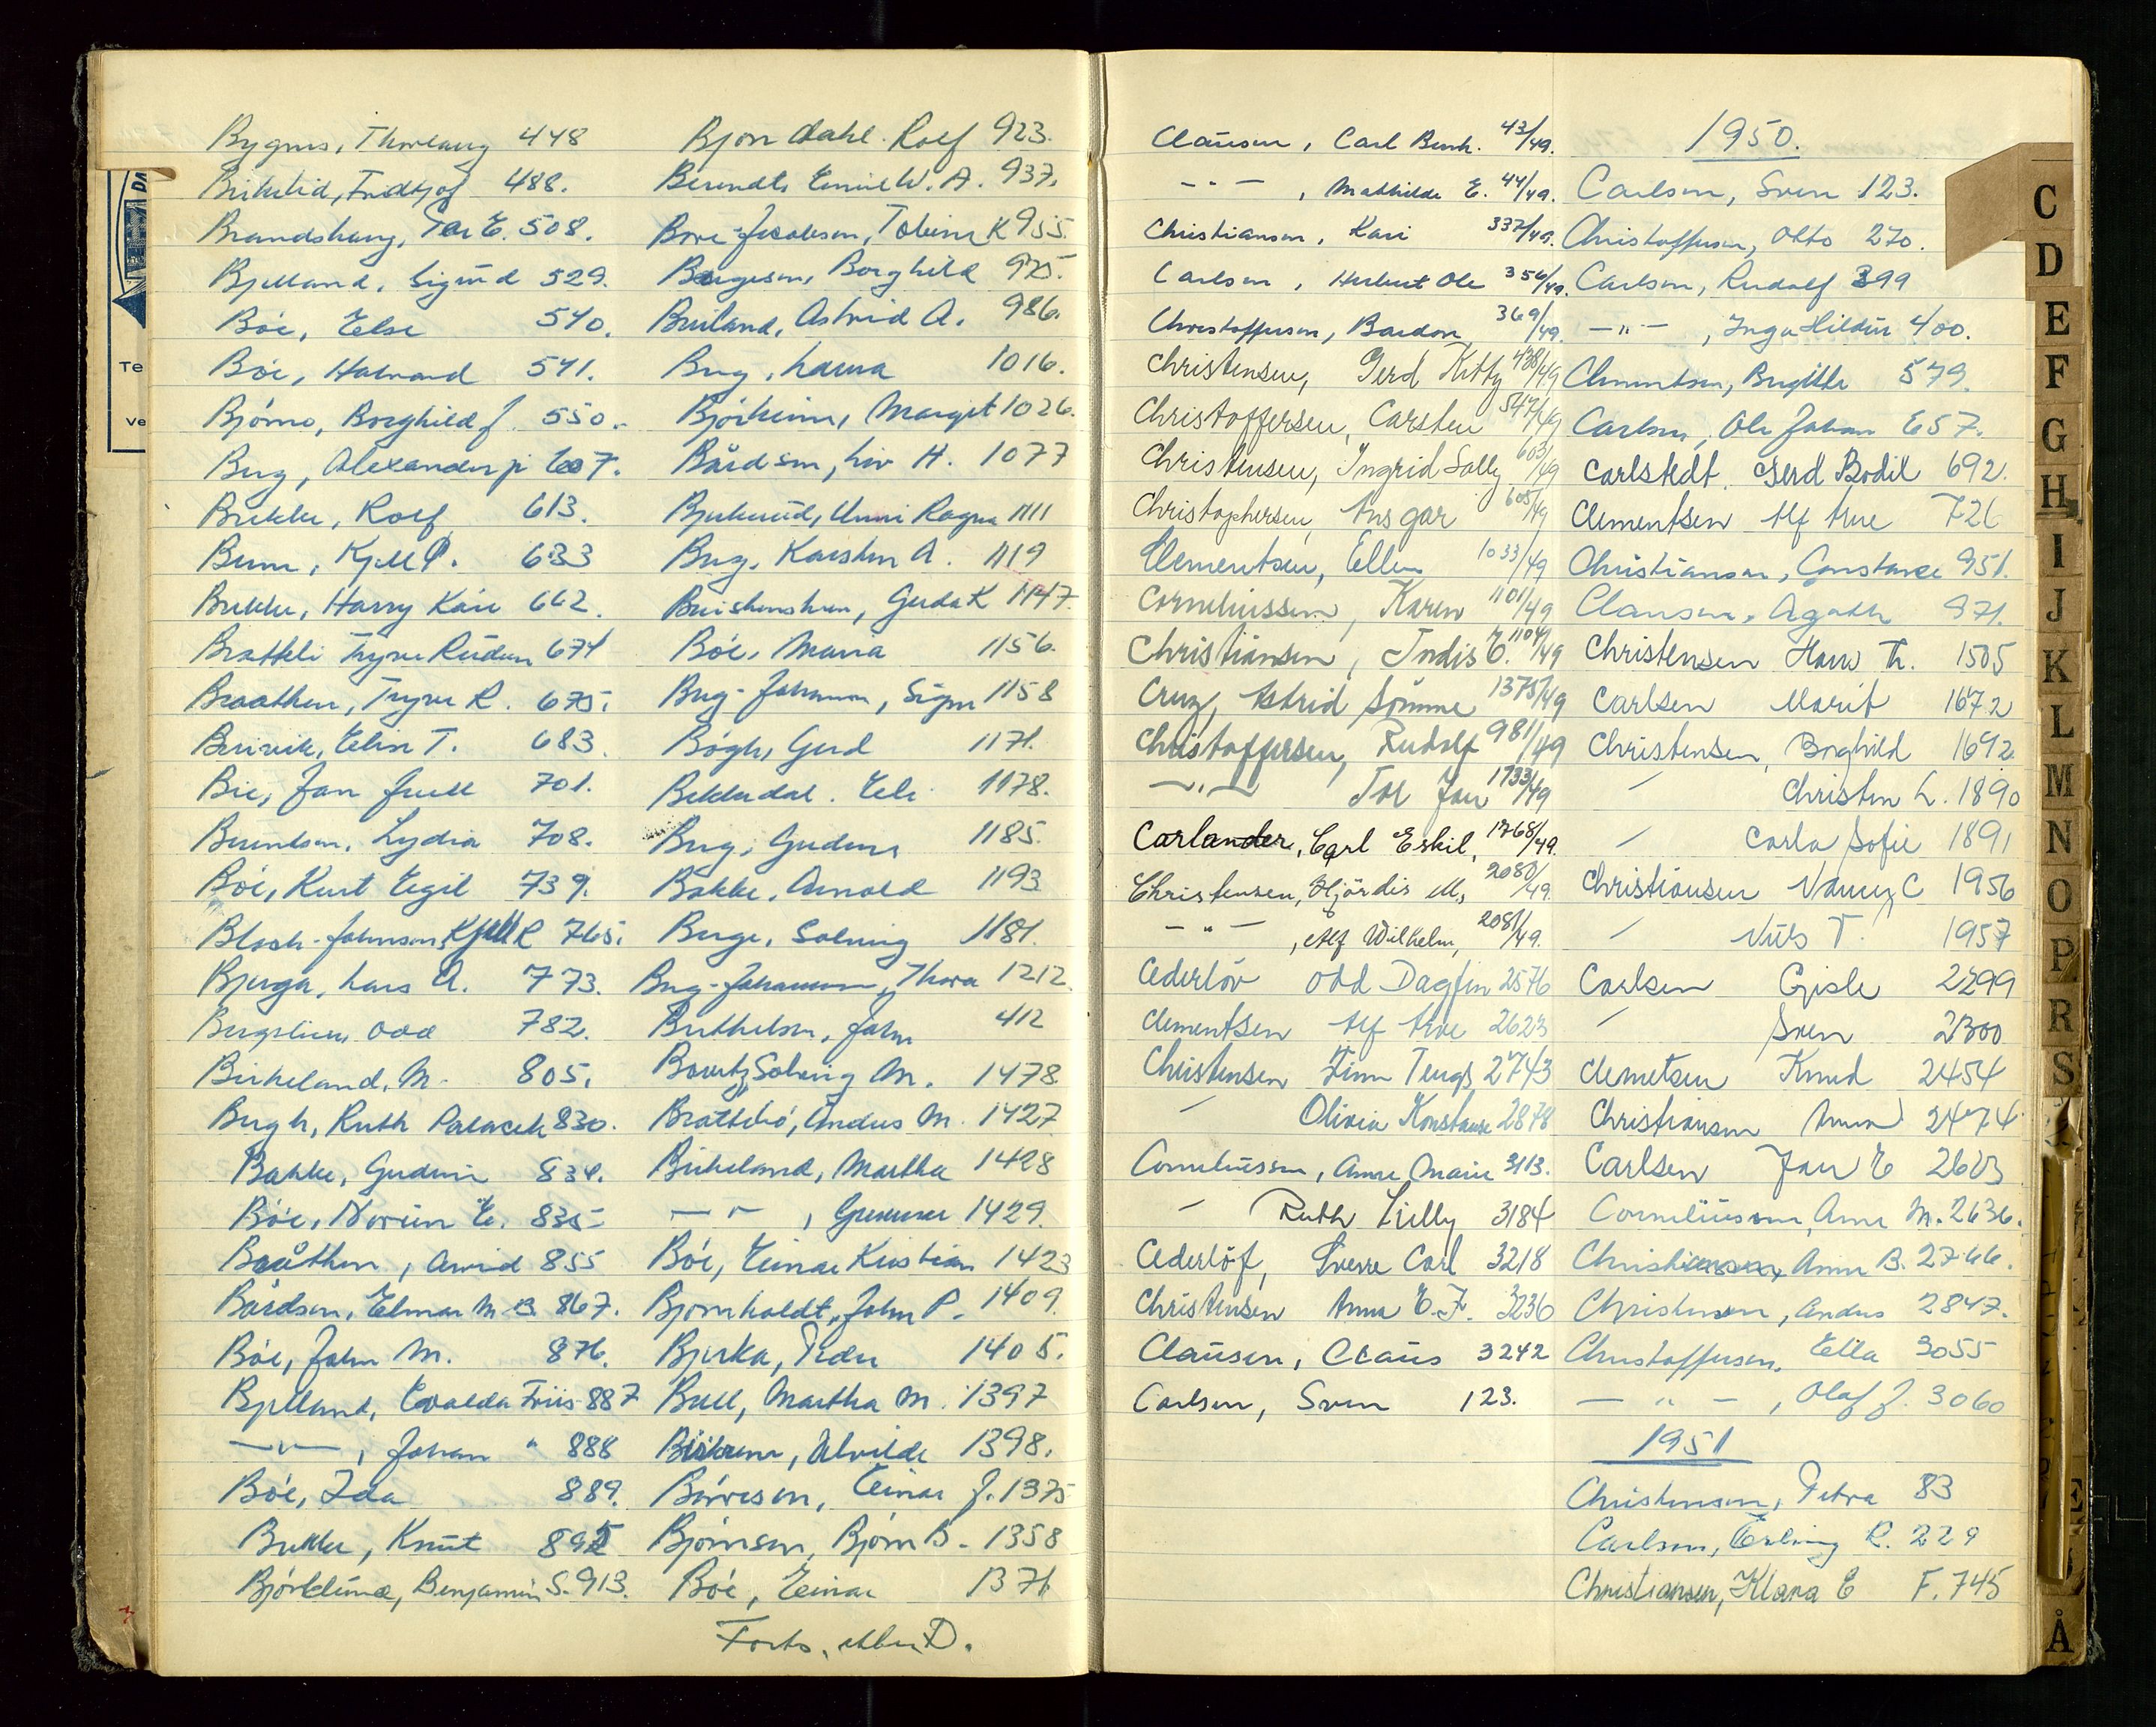 Bygnes, Thorlaug 448
Birkelid, Fridtjof 488.
Brandshaug, Per E. 508.
Bjelland, Sigrud 529.
Böe, Else 540.
Böe, Halvard 541.
Björno, Borghild J. 550.
Berg, Alexander jr 607.
Brekke, Rolf 613.
Berm, Kjell P. 633
Brekke, Harry Kåre 662.
Bratteli Trygve Reidun 674
Braathen, Trygve R. 675.
Berivik, Elin T. 683.
Bie, Jan Juell 701.
Berentsen, Lydia 708.
Böe, Kurt Egil 739.
Block-Johnsen, Kjell R 765.
Bjerga, Lars A. 773.
Bergslien, Odd 782.
Birkeland, M. 805.
Bergh, Ruth Palacek 830.
Bakke, Gudrun 834.
Böe, Noriin E. 835
Braathen, Arvid 855
Bårdsen, Elmar M. B. 867.
Böe, John M. 876.
Bjelland, Evalda Friis 887
— " — , Johan " 888
Böe, Ida 889.
Brekke, Knut 895
Björklund, Benjamin S. 913.
Bjorn dahl. Rolf 923.
Berendts Emil W. A. 937.
Bore-Jacobsen, Tobine K 955.
Børgesen, Borghild 975.
Breiland, Astrid A. 986.
Berg, Laura 1016.
Björheim, Margit 1026.
Bårdsen, Liv H. 1077
Bjerkerud, Unni Ragna 1111
Berg, Karsten A. 1119
Breistenstein, Gerda K 1147.
Böe, Maria 1156.
Berg-Johannesen, Signe 1158
Bögh, Gerd 1171.
Bekkedal. Eli 1178.
Berg, Gudrun 1185.
Bakke, Arnold 1193
Berge, Solveig 1181.
Berg-Johannesen, Thora 1212.
Berthelsen, John 412
Bowitz, Solveig M. 1478.
Brattebö, Andus M. 1427
Birkeland, Martha 1428
— " — , Gunnar 1429.
Böe, Einar Kristian 1423
Bjornholdt, John P. 1409.
Bjerka, Peder 1405.
Bull, Martha M. 1397
, Alvilde 1398.
Börresen, Einar J. 1375
Björnsen, Björn B. 1358
Böe, Einar 1371
Forts. etter D.
Clausen, Carl Bernh. 43/49.
— " — , Mathilde E. 44/49.
Christiansen, Kari 337/49.
Carlsen, Herbert Ole 356/49.
Christoffersen, Baardon 369/49.
Christensen, Gerd Kitty 438/49
Christoffersen, Carsten 547/49
Christensen, Ingrid Solly 603/49
Christophersen, Ansgar 605/49
Clementsen, Ellen 1033/49
Corneliussen, Karen 1101/49
Christiansen, Indis E. 1104/49
Cruz, Astrid Sömme 1375/49
Christoffersen, Rudolf 981/49
— " — Tor Jan 1733/49
Carlander, Carl Eskil, 1768/49.
Christensen, Hjördis M., 2080/49.
— " — , Alf Wilhelm, 2081/49.
Cederlöv Odd Dagfin 2576
Clementsen Alf Arve 2623
Christensen Finn Tengs 2743
" Olivia Konstanse 2878
Corneliussen, Anne Marie 3113.
" Ruth Lilly 3184
Cederlöf, Sverre Carl 3218
Christensen Anna E. F. 3236
Clausen, Claus 3242
Carlsen, Sven 123.
1950.
Carlsen, Sven 123.
Christoffersen, Otto 270.
Carlsen, Rudolf 399
— " — , Inga Hildur 400.
Clementsen, Birgitte 579.
Carlsen, Ole Johan 657.
Carlstedt, Gerd Bodil 692.
Clementsen Alf Arve 726
Christiansen, Constance 951.
Clausen, Agathe 971.
Christensen Hans Th. 1505
Carlsen Marit 1672
Christensen, Borghild 1692
" Christen L. 1890
" Carla Sofie 1891
Christiansen Nanny C 1956
" Nils T. 1957
Carlsen Gisle 2299
" Sven 2300
Clemetsen Knud 2454
Christiansen Anna 2474
Carlsen Jan E 2623
Corneliussen, Anne M. 2636.
Christiansen, Anne B. 2766.
Christensen, Andus 2847.
Christoffersen, Ella 3055
— " — , Olaf J. 3060
1951
Christensen, Petra 83
Carlsen, Erling R. 229
Christiansen, Klara E F. 745
C
D
E
F
G
H
I
J
K
L
M
N
O
P
R
S
Å
Te
ve